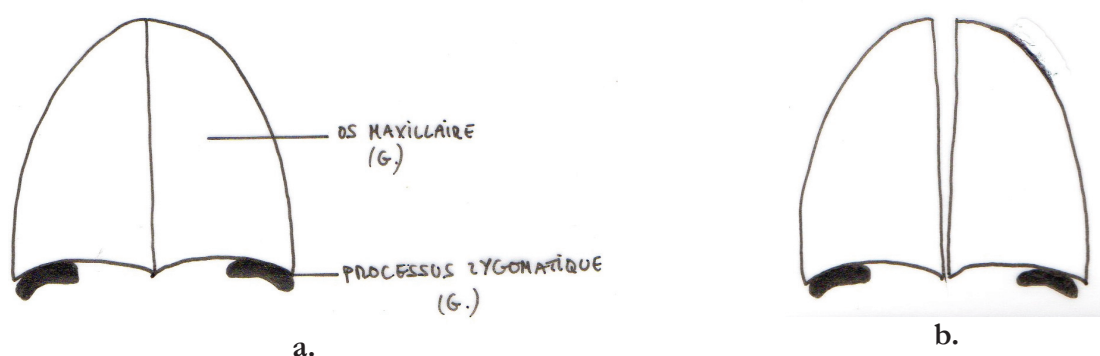 OS MAXILLAIRE
(G.)
PROCESSUS ZYGOMATIQUE
(G.)
a.
b.